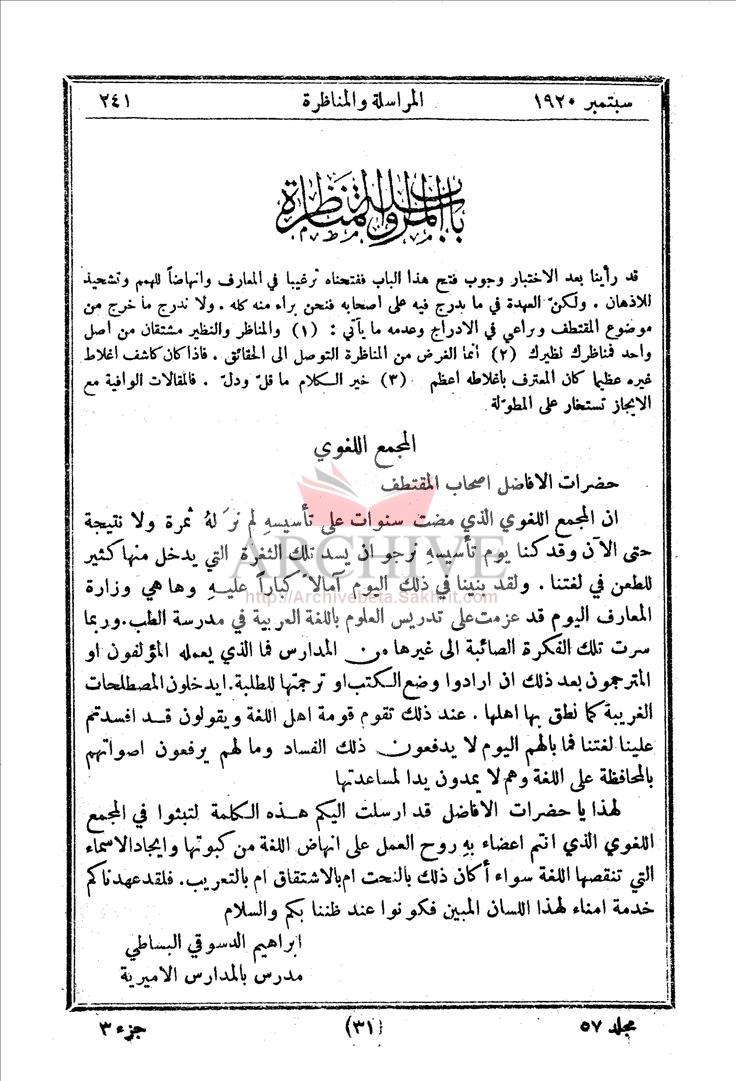 سبتمبر ١٩٢٠ المراسلة والمناظرة ٢٤١
باب المراسلة والمناظرة
قد رأينا بعد الاختبار وجوب فتح هذا الباب ففتحناه ترغيبا في المعارف وانهاضاً للهمم وتشحيذ
للاذهان . ولكنّ العهدة في ما يدرج فيه على اصحابه فنحن براء منه كله . ولا ندرج ما خرج عن
موضوع المقتطف ونراعي في الادراج وعدمه ما يأتي : (١) والمناظر والنظير مشتقان من اصل
واحد فمناظرك نظيرك (٢) انما الغرض من المناظرة التوصل الى الحقائق . فاذا كان كاشف اغلاط
غيره عظيما كان المعترف باغلاطه اعظم (٣) خير الكلام ما قلّ ودلّ . فالمقالات الوافية مع
الايجاز تستخار على المطوّلة
المجمع اللغوي
حضرات الافاضل اصحاب المقتطف
ان المجمع اللغوي الذي مضت سنوات على تأسيسهِ لم نرَ لهُ ثمرة ولا نتيجة
حتى الآن وقد كنا يوم تأسيسهِ نرجو ان يسد تلك الثغرة التي يدخل منها كثير
للطعن في لغتنا . ولقد بنينا في ذلك اليوم آمالاً كباراً عليهِ وها هي وزارة
المعارف اليوم قد عزمت على تدريس العلوم باللغة العربية في مدرسة الطب . وربما
سرت تلك الفكرة الصائبة الى غيرها من المدارس فما الذي يعمله المؤلفون او
المترجمون بعد ذلك ان ارادوا وضع الكتب او ترجمتها للطلبة . ايدخلون المصطلحات
الغريبة كما نطق بها اهلها . عند ذلك تقوم قومة اهل اللغة ويقولون قد افسدتم
علينا لغتنا فما بالهم اليوم لا يدفعون ذلك الفساد وما لهم يرفعون اصواتهم
بالمحافظة على اللغة وهم لا يمدون يدا لمساعدتها
لهذا يا حضرات الافاضل قد ارسلت اليكم هذه الكلمة لتبثوا في المجمع
اللغوي الذي انتم اعضاء بهِ روح العمل على انهاض اللغة من كبوتها وايجاد الاسماء
التي تنقصها اللغة سواء أكان ذلك بالنحت ام بالاشتقاق ام بالتعريب . فلقد عهدناكم
خدمة امناء لهذا اللسان المبين فكونوا عند ظننا بكم والسلام
ابراهيم الدسوقي البساطي
مدرس بالمدارس الاميرية
مجلد ٥٧ (٣١) جزء ٣
ARCHIVE
http://Archivebeta.Sakhrit.com